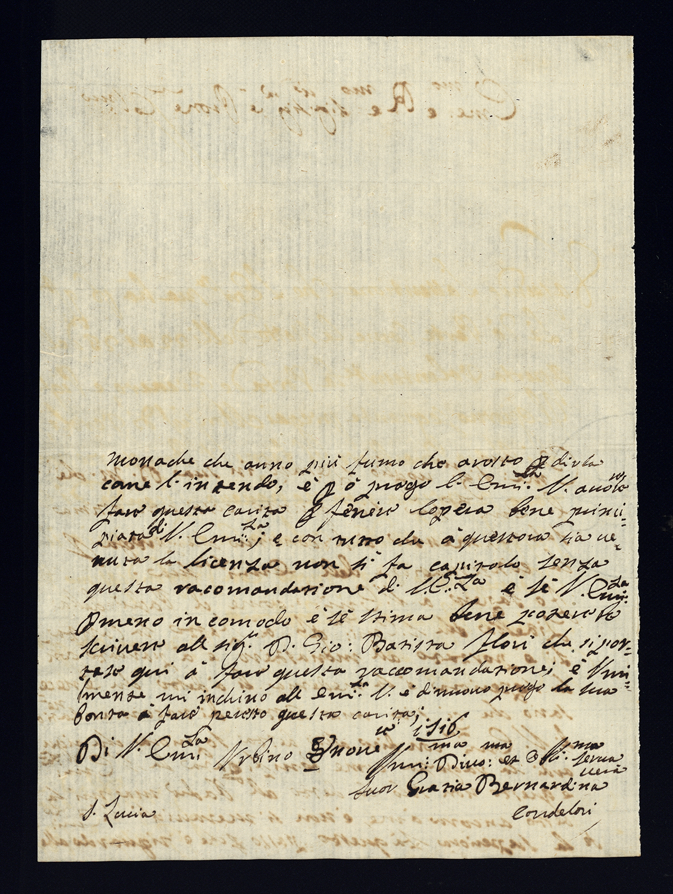 monache che anno più fumo che arosto p dirla
come l'intendo, è p ò prego l'Emi:za V. a voler
fare questa carita p fenire l'opera bene princi=
piata di V. Emi:za, e con tutto che à quest'ora sia ve=
nuta la licenza non si fa capitolo senza
questa racomandatione di V. E:za è sè V. Emi:za
p meno incomodo è sè stima bene potere
scivere all sig.r D. Gio: Batista Flori che si por=
tase qui à fare questa raccomandatione, è Vmi=
lmente mi inchino all Emi:za V. è di nuovo prego la sua
bontà à fare presto questa carita;
Di V. Emi:za Vrbino
Vmi:ma Divo:ma et Obli:ma serva
vera
Suor Grazia Bernardina
Condelori
S. Lucia